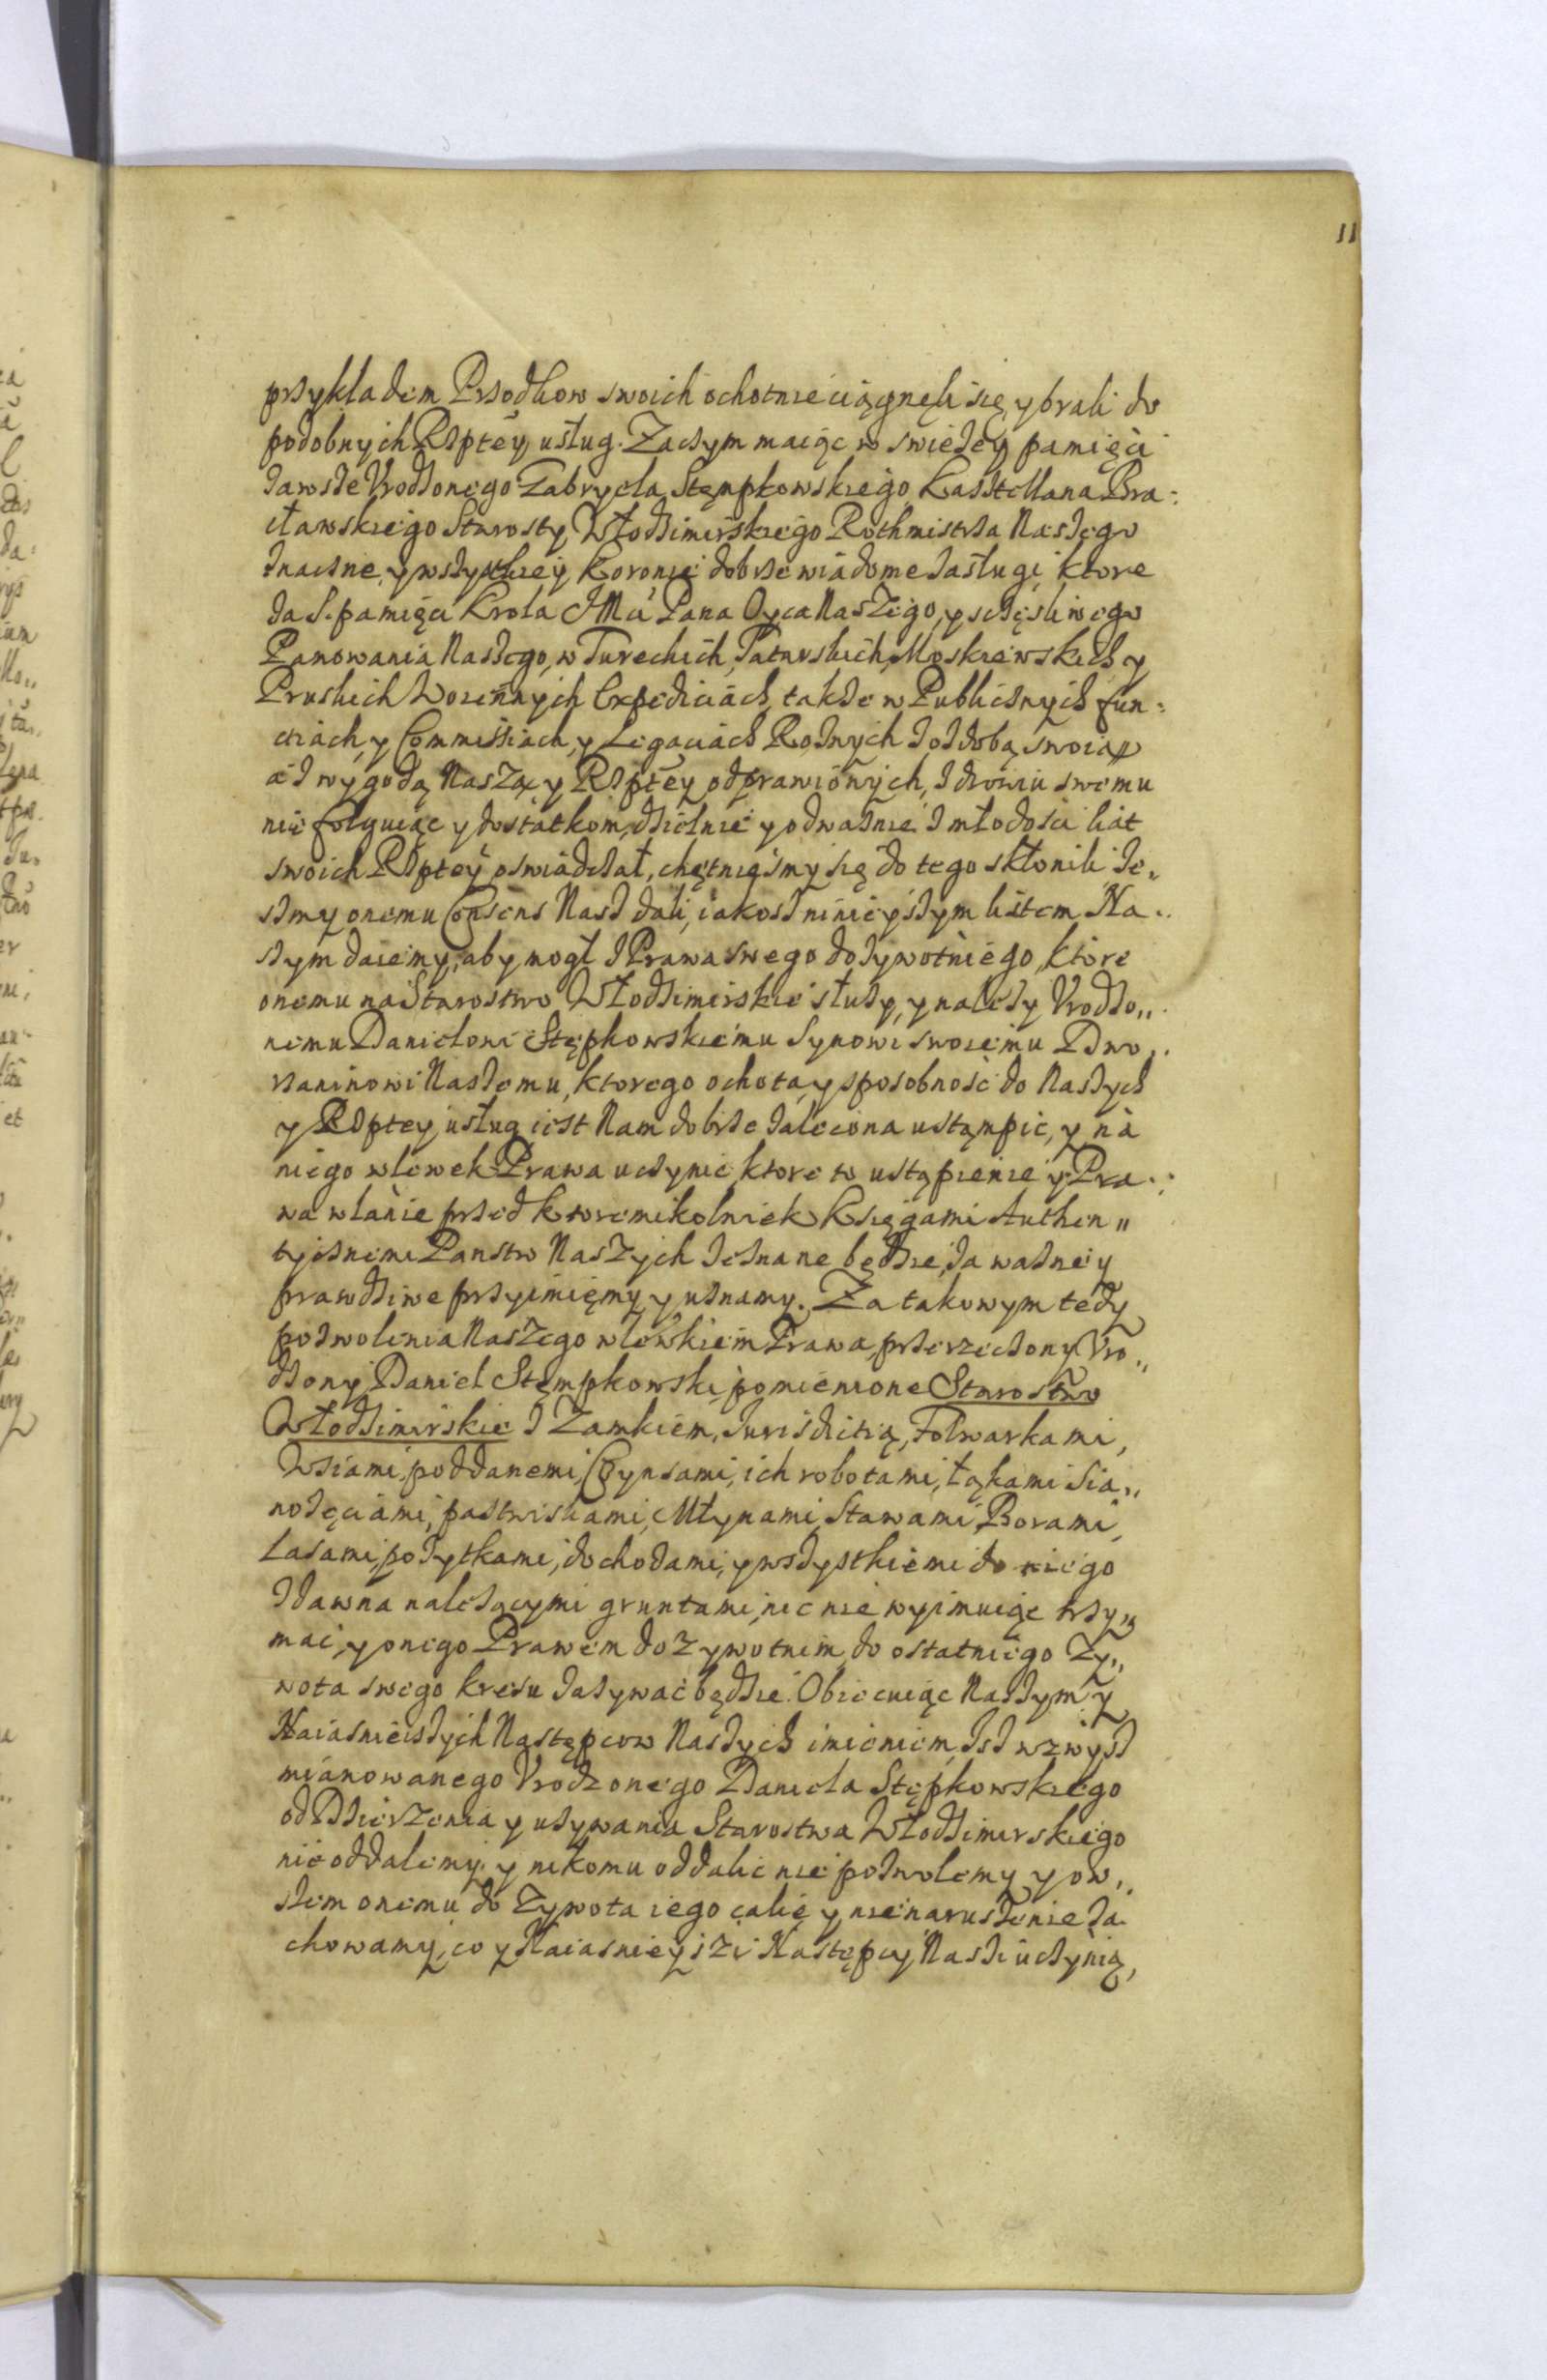 11
przykładem Przodkow swoich ochotnie ciągnęli się, y brali do
podobnych Rzptey usług. Zaczym maiąc w swieżey pamięci
zawsze Urodzonego Gabryela Stempkowskiego Kasztellana Bra:
cławskiego Starosty Włodzimirskiego Rothmistrza Naszego
znaczne, y wszystkiey Koronie dobrze wiadome zasługi, ktore
za S. pamięci Krola JMci Pana Oyca Naszego, y szczęśliwego
Panowania Naszego, w Tureckich, Tatarskich, Moskiewskich y
Pruskich Woiennych Expediciach, także w Publicznych fun:
ctiach, y Commissiach, y Legaciach Rożnych z ozdobą swoią
a z wygodą Naszą y Rzptey odprawionych, zdrowiu swemu
nie folguiąc y dostatkom, dzielnie y odważnie z młodości liat
swoich Rzptey oswiadczał, chętnieśmy się do tego skłonili że„
szmy onemu Consens Nasz dali, iakosz ninieyszym listem Na„
szym daiemy, aby mogł z Prawa swego dożywotniego, ktore
onemu na Starostwo Włodzimirskie służy, y należy Urodzo„
nemu Danielowi Stępkowskiemu Synowi swoiemu Dwo„
rzaninowi Naszemu, ktorego ochota, y sposobność do Naszych
y Rzptey usług iest Nam dobrze zalecona ustąmpic, y na
niego wlewek Prawa uczynic, ktore to ustąpienie y Pra:
wa wlanie przed ktoremikolwiek Księgami Authen„
tycznemi Panstw Naszych zeznane będzie, za ważne y
prawdziwe przyimiemy y uznamy. Za takowym tedy
pozwolenia Naszego wlewkiem Prawa, przerzeczony Uro„
dzony Daniel Stempkowski, pomienione Starostwo
Włodzimirskie z Zamkiem, Jurisdictią, Folwarkami,
Wsiami, poddanemi, Czynszami, ich robotami, łąkami Sia„
nożęciami, pastwiskami, Młynami, Stawami, Borami,
Lasami, pożytkami, dochodami, y wszystkiemi do niego
zdawna należącymi gruntami, nic nie wyimuiąc trzy„
mac, y onego Prawem dożywotnim, do ostatniego Ży„
wota swego kresu zażywać będzie. Obiecuiąc Naszym y
Naiasnieiszych Następcow Naszych imieniem, Isz wzwysz
mianowanego Urodzonego Daniela Stępkowskiego
od Dzierzenia y używania Starostwa Włodzimirskiego
nie oddalemy, y nikomu oddalic nie pozwolemy y ow„
szem onemu do Żywota iego całie y nienaruszenie za
chowamy, co y Naiasnieyszi Następcy Naszi uczynią,